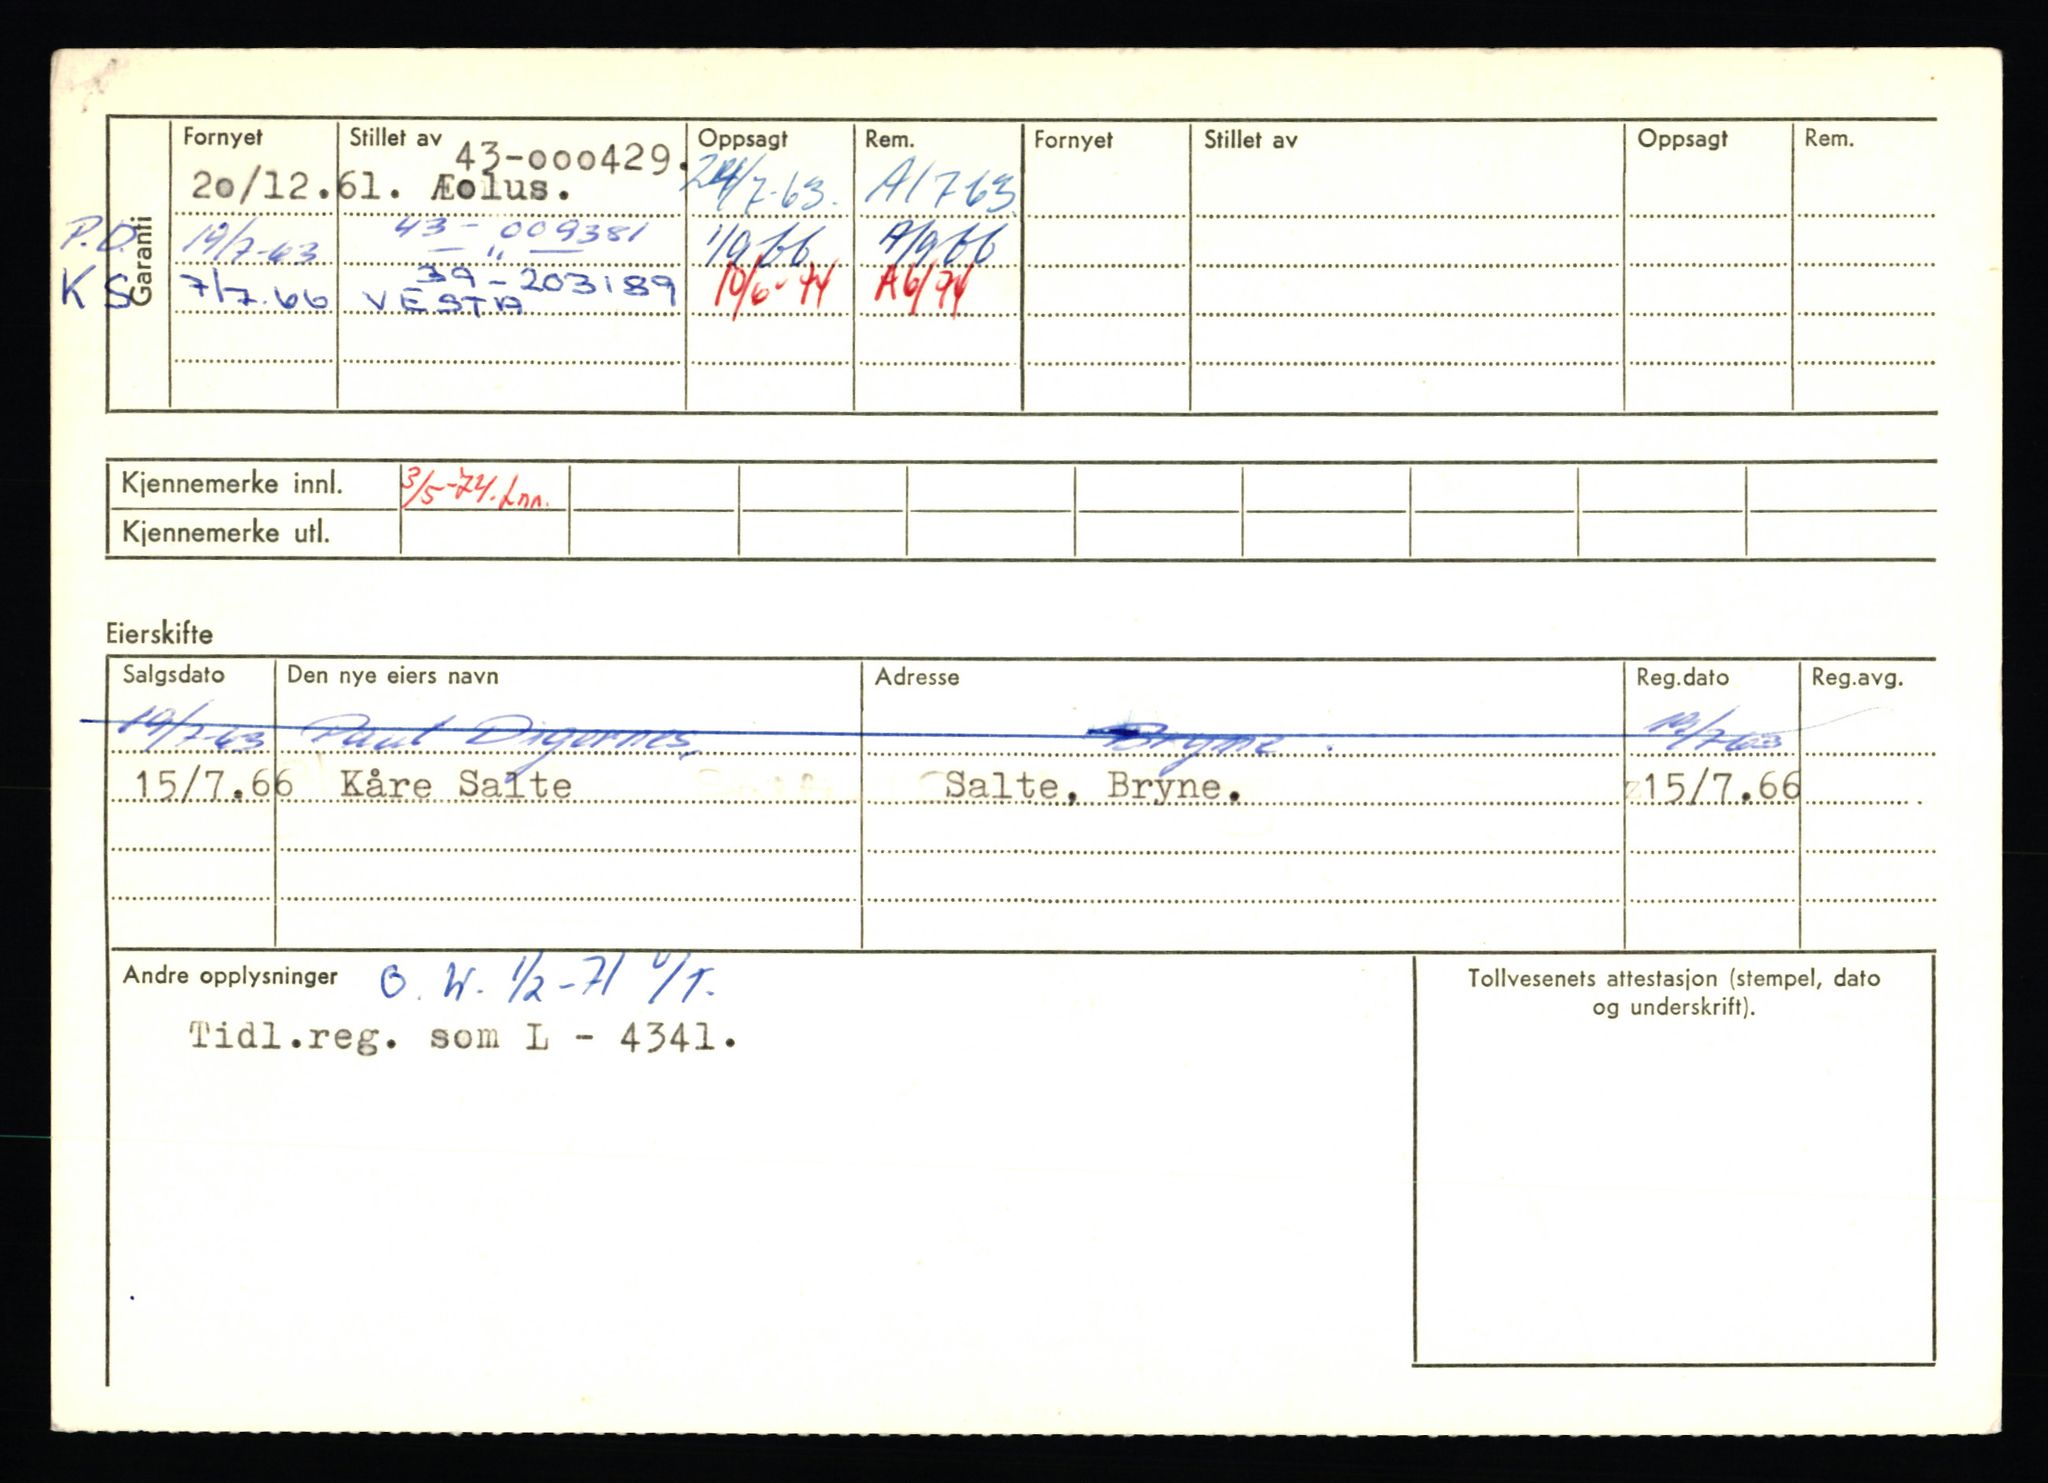 Garanti
Fornyet Stillet av Oppsagt Rem. Fornyet Stillet av Oppsagt Rem.
43-000429.
20/12.61. Æolus. 24/7-63. A/7 63.
P.D. 19/7-63 43-009381 1/9 66 A/9 66
— " —
K S 7/7.66 39-203189 10/6-74 A6/74
VESTA
Kjennemerke innl. 3/5-74.
Kjennemerke utl.
Eierskifte
Salgsdato Den nye eiers navn Adresse Reg.dato Reg.avg.
19/7-63 Paul Bryne. 19/7-63
15/7.66 Kåre Salte Salte, Bryne. 15/7.66
Andre opplysninger B. W. 1/2-71 u/T.
Tidl.reg. som L - 4341.
Tollvesenets attestasjon (stempel, dato
og underskrift).